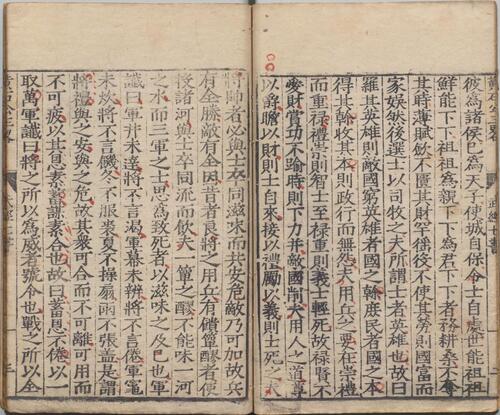 彼為諸侯已為天子使城自保令士自處世能祖祖
鮮能下下祖祖為親下下為君下下者務耕桑不奪
其時薄賦歛不匱其財罕徭役不使其勞則國富而
家娛然後選士以司牧之夫所謂士者英雄也故曰
羅其英雄則敵國窮英雄者國之幹庶民者國之本
得其幹收其本則政行而無怨夫用兵之要在崇禮
而重祿禮崇則智士至祿重則義士輕死故祿賢不
愛財賞功不踰時則下力并敵國削夫用人之道尊
以爵贍以財則士自來接以禮勵以義則士死之夫
將帥者必與士卒同滋味而共安危敵乃可加故兵
有全勝敵有全因昔者良將之用兵有饋簞醪者使
投諸河與士卒同流而飲夫一簞之醪不能味一河
之水而三軍之士思為致死者以滋味之及已也軍
讖曰軍井未達將不言渴軍幕未辨將不言倦軍竈
未炊將不言饑冬不服裘夏不操扇雨不張蓋是謂
將禮與之安與之危故其衆可合而不可離可用而
不可疲以其恩素蓄謀素合也故曰蓄恩不倦以一
取萬軍讖曰將之所以為威者號令也戰之所以全